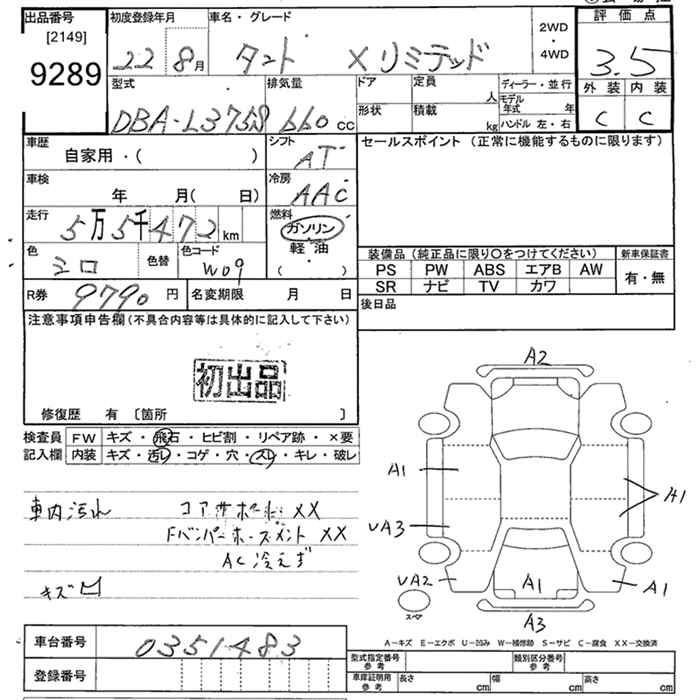 出品番号
[2149]
9289
初度登録年月
22 8月
車名・グレード
タント X リミテッド
2WD
4WD
評価点
3.5
外装 内装
C C
型式
DBA-L375S
排気量
660 cc
ドア
定員
人
形状
積載
kg
ディーラー・並行
モデル年式 年
ハンドル 左・右
車歴
自家用・( )
シフト
AT
セールスポイント (正常に機能するものに限ります)
車検
年 月( 日)
冷房
AAC
走行
5万5千472km
燃料
ガソリン
軽・油
( ・ )
色
シロ
色替
色コード
W09
装備品 (純正品に限り○をつけてください)
新車保証書
PS PW ABS エアB AW
SR ナビ TV カワ
有・無
R券 9790 円
名変期限 月 日
後日品
注意事項申告欄 (不具合内容等は具体的に記入して下さい)
初出品
修復歴 有 〔箇所 〕
検査員
記入欄
FW キズ・飛石・ヒビ割・リペア跡・×要
内装 キズ・汚レ・コゲ・穴・スレ・キレ・破レ
車内汚れ
コアサポート XX
Fバンパーホースメント XX
AC冷えず
キズ凹
A2
A1
A1
UA3
UA2
A1
A1
A3
スペア
A-キズ E-エクボ U-凹み W-補修跡 S-サビ C-腐食 XX-交換済
車台番号 0351483
登録番号
型式指定番号
参考
類別区分番号
参考
車庫証明用
参考
長さ cm
幅 cm
高さ cm